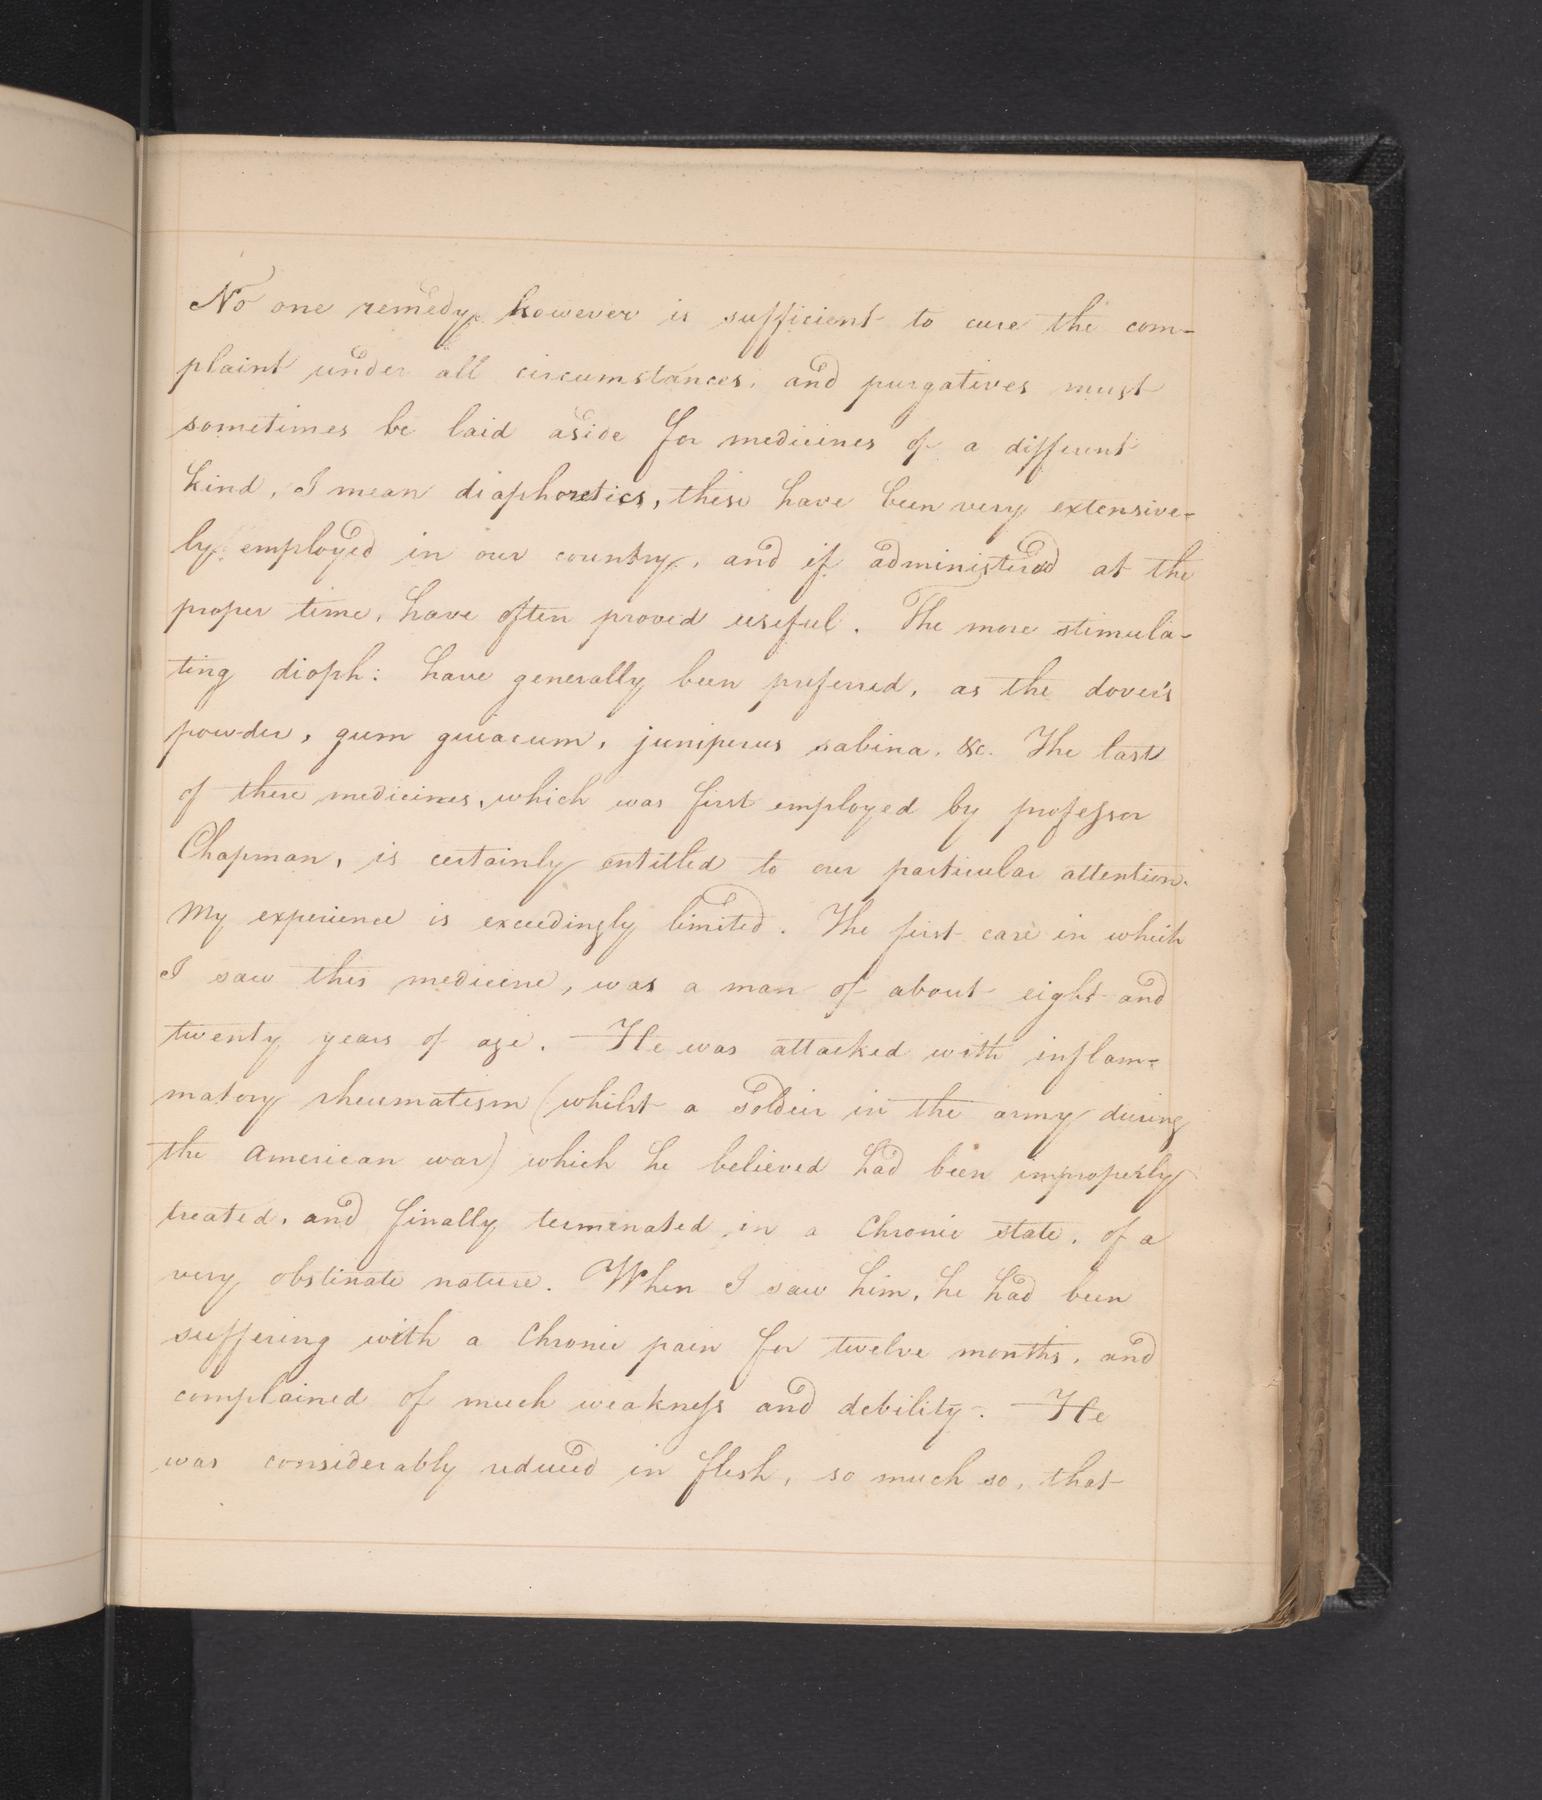 No one remedy however is sufficient to cure the com-
plaint under all circumstances, and purgatives must
sometimes be laid aside for medicines of a different
kind, I mean diaphoretics, these have been very extensive-
ly employed in our country, and if administered at the
proper time, have often proved useful. The more stimula-
ting dioph: have generally been preferred, as the dover's
powder, gum guiacum, juniperus sabina, &c. The last
of these medicines, which was first employed by professor
Chapman, is certainly entitled to our particular attention.
My experience is exceedingly limited. The first case in which
I saw this medicine, was a man of about eight and
twenty years of age. He was attacked with inflam-
matory rheumatism (whilst a soldier in the army during
the American war) which he believed had been improperly
treated, and finally terminated in a chronic state, of a
very obstinate nature. When I saw him, he had been
suffering with a chronic pain for twelve months, and
complained of much weakness and debility. He
was considerably reduced in flesh, so much so, that